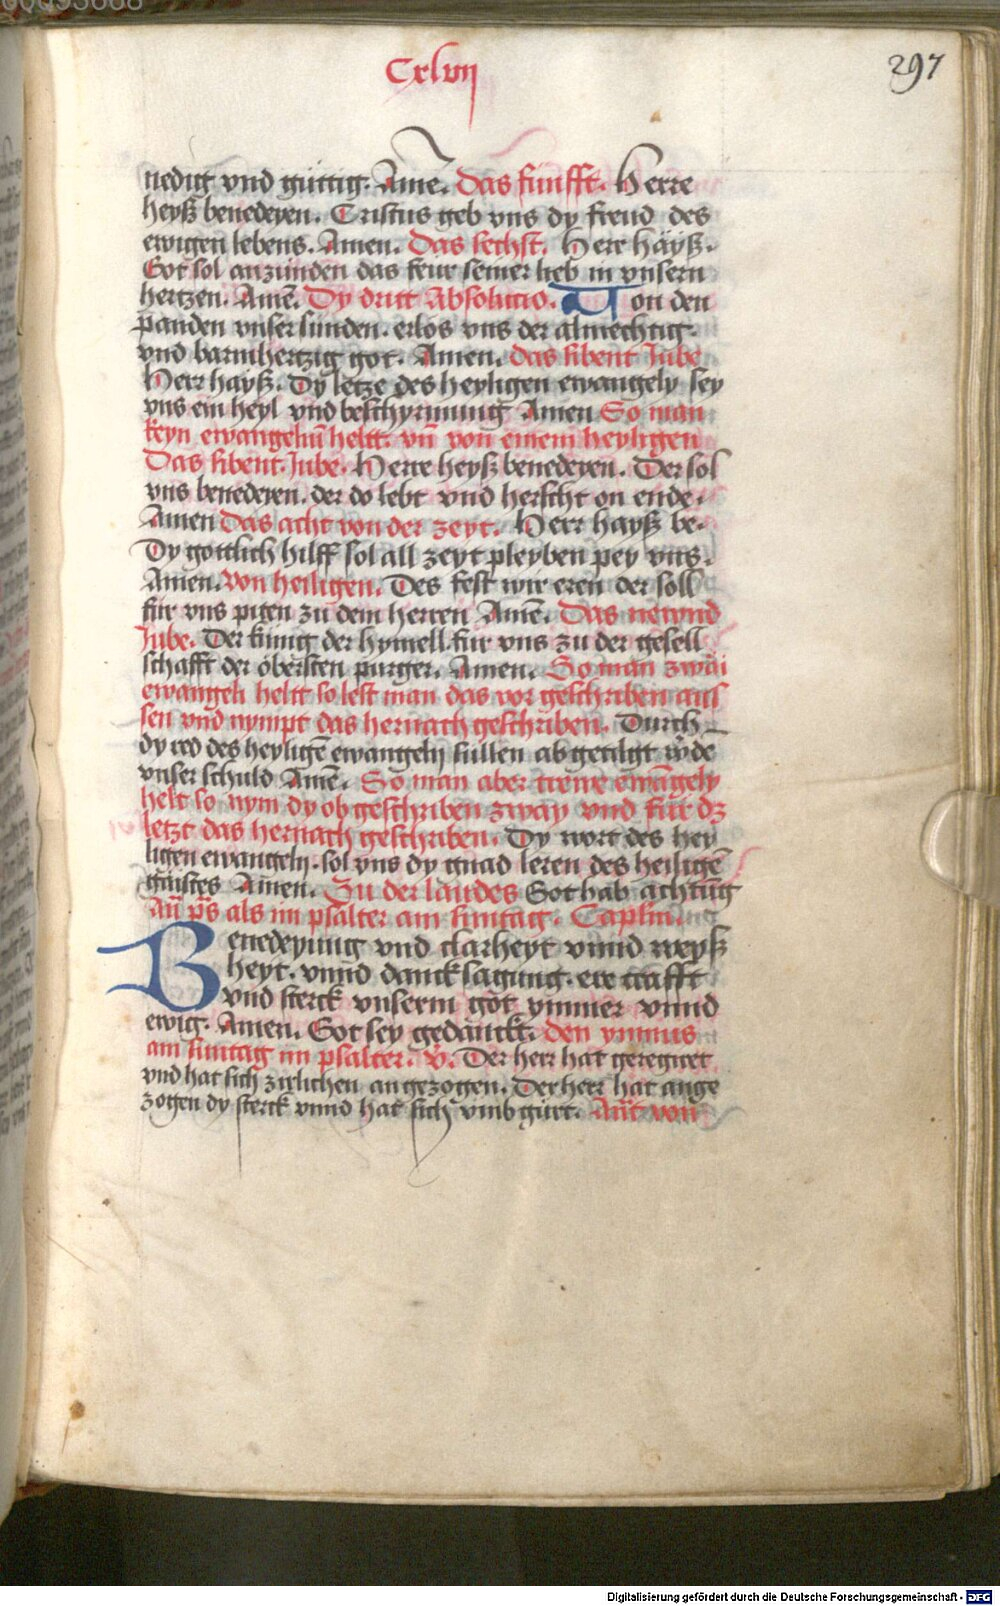 Cxlvij
297
nedig vnd guttig. Amē. Das funfft. Herre
heyß benedeyen. Cristus geb vns dy freud des
ewigen lebens. Amen. Das sechst. Herr häyß.
Got sol anzunden das feur seiner lieb in vnsern
hertzen. Amē. Dy dritt Absolucio. Von den
panden vnser sunden. erlos vns der almechtig
vnd barmhertzig got. Amen. das sibent Jube
Herr hayß. Dy letze des heyligen ewangely sey
vns ein heyl vnd beschyrmung Amen So man
keyn ewangeliū heltt. vn̄ von einem heyligen
Das sibent. Jube. Herre heyß benedeyen. Der sol
vns benedeyen. der do lebt vnd herscht on ende.
Amen Das acht von der zeyt. Herr hayß be.
Dy gotlich hilff sol all zeyt pleyben pey vns.
Amen. Von heiligen. Des fest wir eren der soll
für vns piten zu dem herren Amē. Das newnd
Jube. Der kunig der hymell für vns zu der gesell
schafft der obersten purger. Amen. So man zwäi
ewangeli heltt so lest man das vor geschriben aus
sen vnd nympt das hernach geschriben. Durch
dy red des heyligē ewangelij süllen abgetilgt wde
vnser schuld Amē. So man aber trewe ewāgely
helt so nym dy ob geschriben zway vnd für dz
letzt das hernach geschriben. Dy wort des hey
ligen ewangelij. sol vns dy gnad leren des heiligē
gaistes Amen. Zu der laudes Got hab achtūg
Añ ps̄ als im psalter am suntag. Caplm.
Benedeyung vnd clarheyt vnnd weyß
heyt. vnnd dancksagung. ere crafft
vnd sterck vnserm got ymmer vnnd
ewig. Amen. Got sey gedanckt. den ymnus
am suntag im psalter. v. Der herr hat geregiret
vnd hat sich zirlichen angezogen. Der herr hat ange
zogen dy sterck vnnd hat sich vmb gürt. Añt von
Digitalisierung gefördert durch die Deutsche Forschungsgemeinschaft - DFG